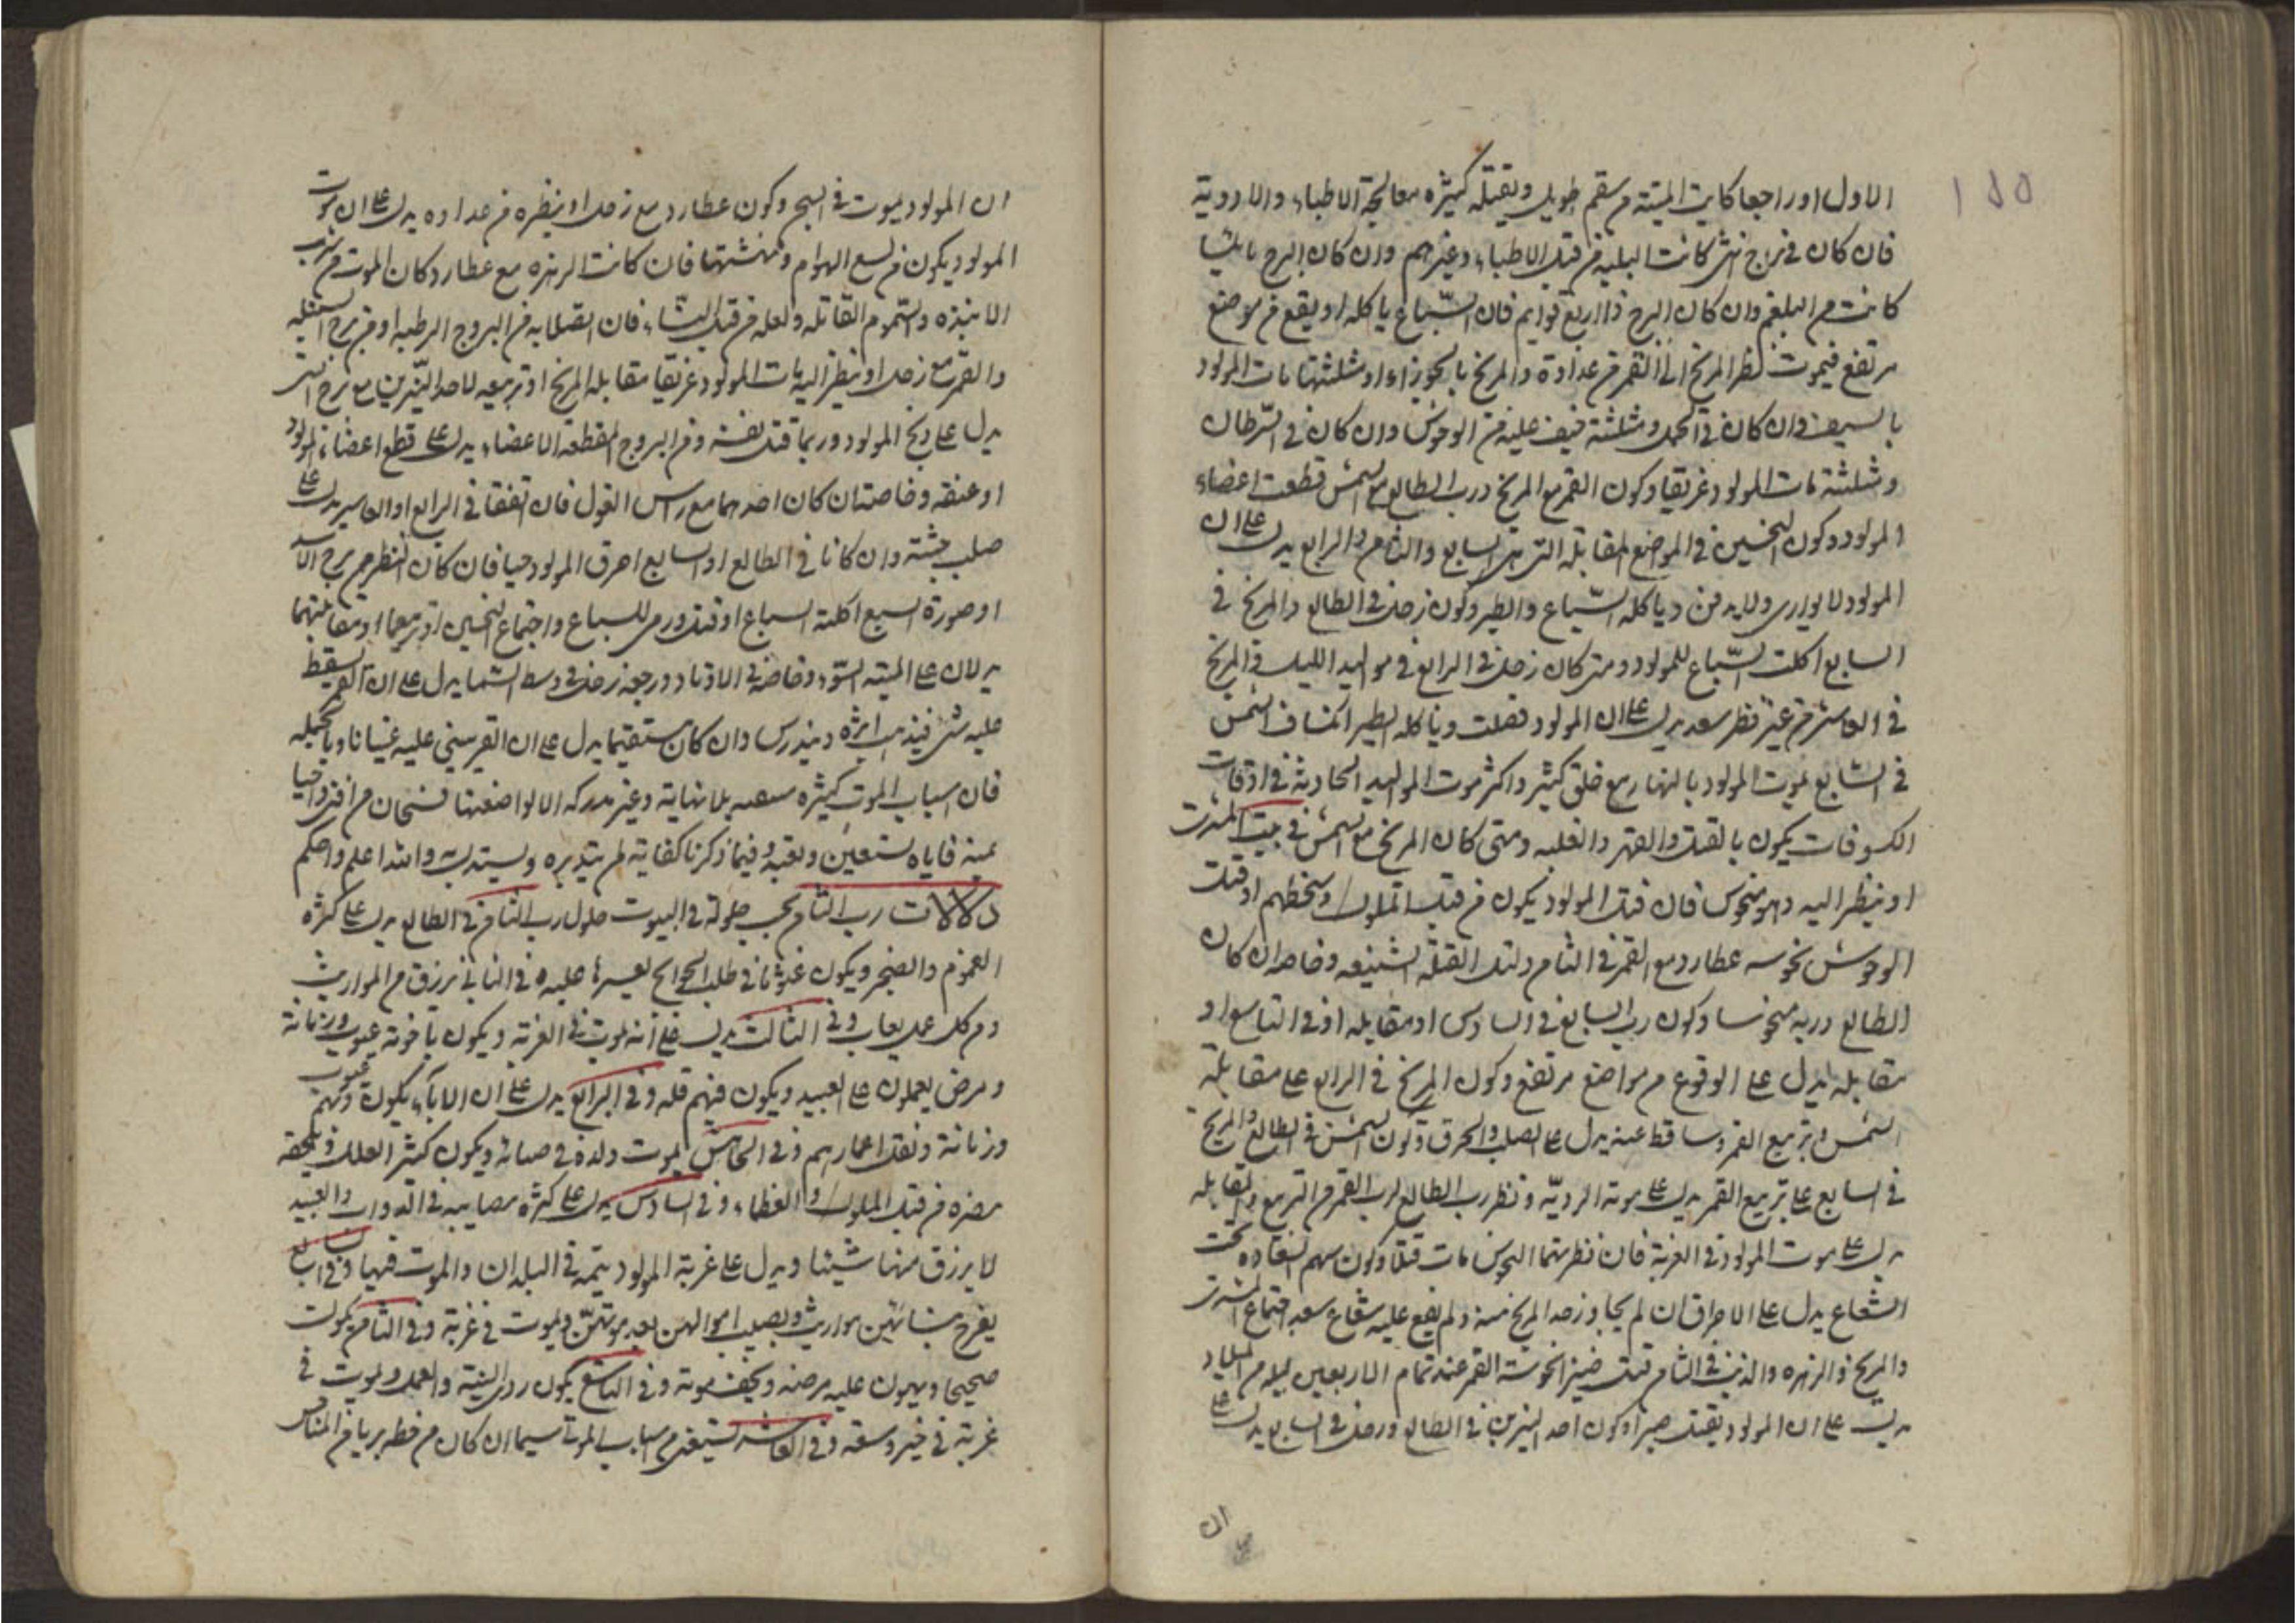 ١٥٥
الاول او راجعا كانت الميتة من سقم طويل ويقتله كثيره معالجة الاطباء والادوية
فان كان في برج انثى كانت البليه من قبل الاطباء وغيرهم وان كان البرج مايئا
كانت من البلغم وان كان البرج ذا اربع قوايم فان السباع ياكله او يقع من موضع
مرتفع فيموت نظر المريخ الى القمر من عداوة والمريخ بالجوزاء او مثلثتها مات المولود
بالسيف وان كان في الحمل ومثلثته خيف عليه من الوحوش وان كان في السرطان
ومثلثته مات المولود غريقا وكون القمر مع المريخ ورب الطالع مع الشمس قطعت اعضاء
المولود وكون النحسين في المواضع المقابلة التي هي السابع والثامن والرابع يدل على ان
المولود لا يوارى ولا يدفن وياكله السباع والطير وكون زحل في الطالع والمريخ في
السابع اكلت السباع للمولود ومتى كان زحل في الرابع في مواليد الليل والمريخ
في العاشر من غير نظر سعد يدل على ان المولود وياكله الطير انكساف الشمس
في السابع يموت المولود بالنهار مع خلق كثير واكثر موت المواليد الحادثة في اوقات
الكسوفات يكون بالقتل والقهر والغلبه ومتى كان المريخ مع الشمس في بيت المشترى
او ينظر اليه وهو منحوس فان قتل المولود يكون من قبل الملوك وسخطهم او قتل
الوحوش نحوسه عطارد مع القمر في الثامن القتلة الشنيعه وخاصه ان كان
الطالع وربه منحوسا وكون رب السابع في السادس او مقابله او في التاسع او
مقابله يدل على الوقوع من مواضع مرتفع وكون المريخ في الرابع على مقابلة
الشمس وتربيع القمر وساقط عنه يدل على الصلب والحرق وكون الشمس في الطالع والمريخ
في السابع على تربيع القمر يدل على موته الرديه ونظر رب الطالع لرب القمر من التربيع والمقابله
يدل على موت المولود في الغربة فان نظرتهما النحوس مات قتلا وكون سهم السعاده تحت
الشعاع يدل على الاحراق ان لم يجاوز حد المريخ منه ولم يقع عليه شعاع سعد اجتماع المشترى
والمريخ والزهره والذنب في الثامن قتل نحوسة القمر عند تمام الاربعين ليله من الميلاد
يدل على ان المولود يقتل صبرا وكون احد النيرين في الطالع وزحل في السابع يدل على
ان
ان المولود يموت في السجن وكون عطارد مع زحل او ينظره من عداوه يدل على ان موت
المولود يكون من لسع الهوام ونهشتها فان كانت الزهره مع عطارد كان الموت من شرب
الانبذه والسموم القاتله ولعله من قبل النساء فان اتصلا به من البروج الرطبه او من برج السنبله
والقمر مع زحل او ينظر اليه مات المولود غريقا مقابله المريخ او تربيعه لاحد النيرين من برج انثى
يدل على ذبح المولود وربما قتل نفسه ومن البروج المقطعة الاعضاء يدل على قطع اعضاء المولود
او عنقه وخاصة ان كان احدهما مع راس الغول فان اتفقا في الرابع او العاشر يدل على
صلب جثته وان كانا في الطالع او السابع احرق المولود حيا فان كان النظر من برج الاسد
او صورة السبع اكلته السباع او قتل ورمى للسباع واجتماع النحسين او تربيعهما او مقابلتهما
يدلان على الميتة السوء وخاصة في الاوتاد ورجعة زحل في وسط السماء يدل على ان القبر يسقط
عليه شى فيذهب اثره ويندرس وان كان مستقيما يدل على ان القبر يبنى عليه بنيانا
فان اسباب الموت كثيره بلا نهاية وغير مدركه الا لواضعها فسبحان من افنى واحيا
بمنه فاياه نستعين ونعبد وفيما ذكرنا كفاية لمن يتدبره ويستدل به والله اعلم واحكم
دلالات رب الثامن بحسب حلوله في البيوت حلول رب الثامن في الطالع يدل على كثره
الغموم والضجر ويكون في طلب الحوائج يعسر عليه وفي الثاني يرزق من المواريث
ومن كل عمل يعاب وفي الثالث يدل على انه يموت في الغربة ويكون باخوته عيوب وزمانة
ومرض يعملون على العبيد ويكون فيهم قله وفي الرابع يدل على ان الاباء يكون فيهم عيوب
وزمانة وتقل اعمارهم وفي الخامس يموت ولده في صباه ويكون كثير العلل ويلحقه
مضره من قبل الملوك والعظماء وفي السادس يدل على كثره مصايبه في الدواب والعبيد
لا يرزق منها شيئا ويدل على غربة المولود في البلدان والموت فيها وفي السابع
يفرح بنسائه من مواريث ويصيب اموالهن بعد موتهن ويموت في غربة وفي الثامن يموت
صحيحا ويهون عليه مرضه ويخف موته وفي التاسع يكون ردى النية والعمل ويموت في
غربة في خير وسعة وفي العاشر من اسباب الموت سيما ان كان من خطه بريا من المناحس